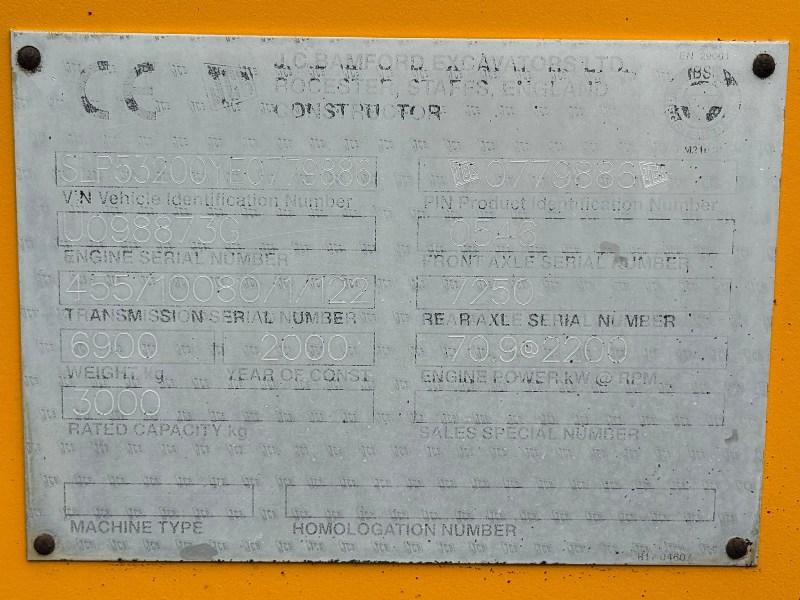 J.C.BAMFORD EXCAVATORS LTD.
ROCESTER, STAFFS, ENGLAND
CONSTRUCTOR
SLP53200YE0779886 0779886
VIN Vehicle Identification Number PIN Product Identification Number
U098873G
ENGINE SERIAL NUMBER FRONT AXLE SERIAL NUMBER
455/10080/1/122 7250
TRANSMISSION SERIAL NUMBER REAR AXLE SERIAL NUMBER
6900 2000 70.9@2200
WEIGHT kg YEAR OF CONST. ENGINE POWER kW @ RPM
3000
RATED CAPACITY kg SALES SPECIAL NUMBER
MACHINE TYPE HOMOLOGATION NUMBER